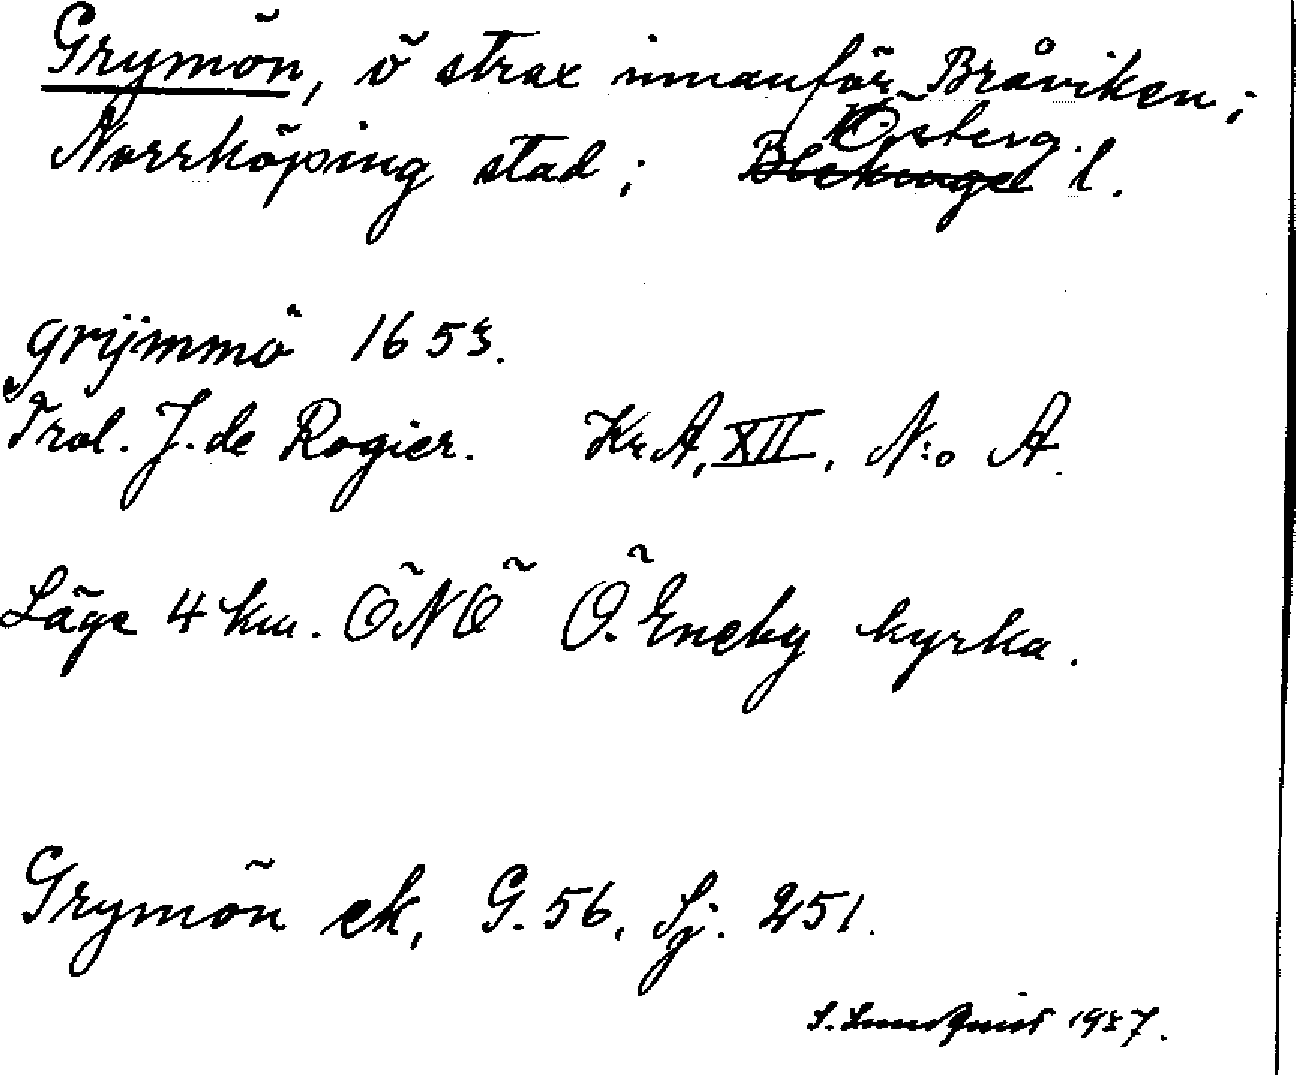 Grymön, ö strax innanför Bråviken;
Norrköping stad; Blekinge Östergl.
grÿmmö 1653.
Trol. J. de Rogier. KrA, XII, N:o A.
Läge 4 km. ÖNÖ Ö. Eneby kyrka.
Grymön ek, G. 56, Sj. 251.
S. Lundquist 1937.